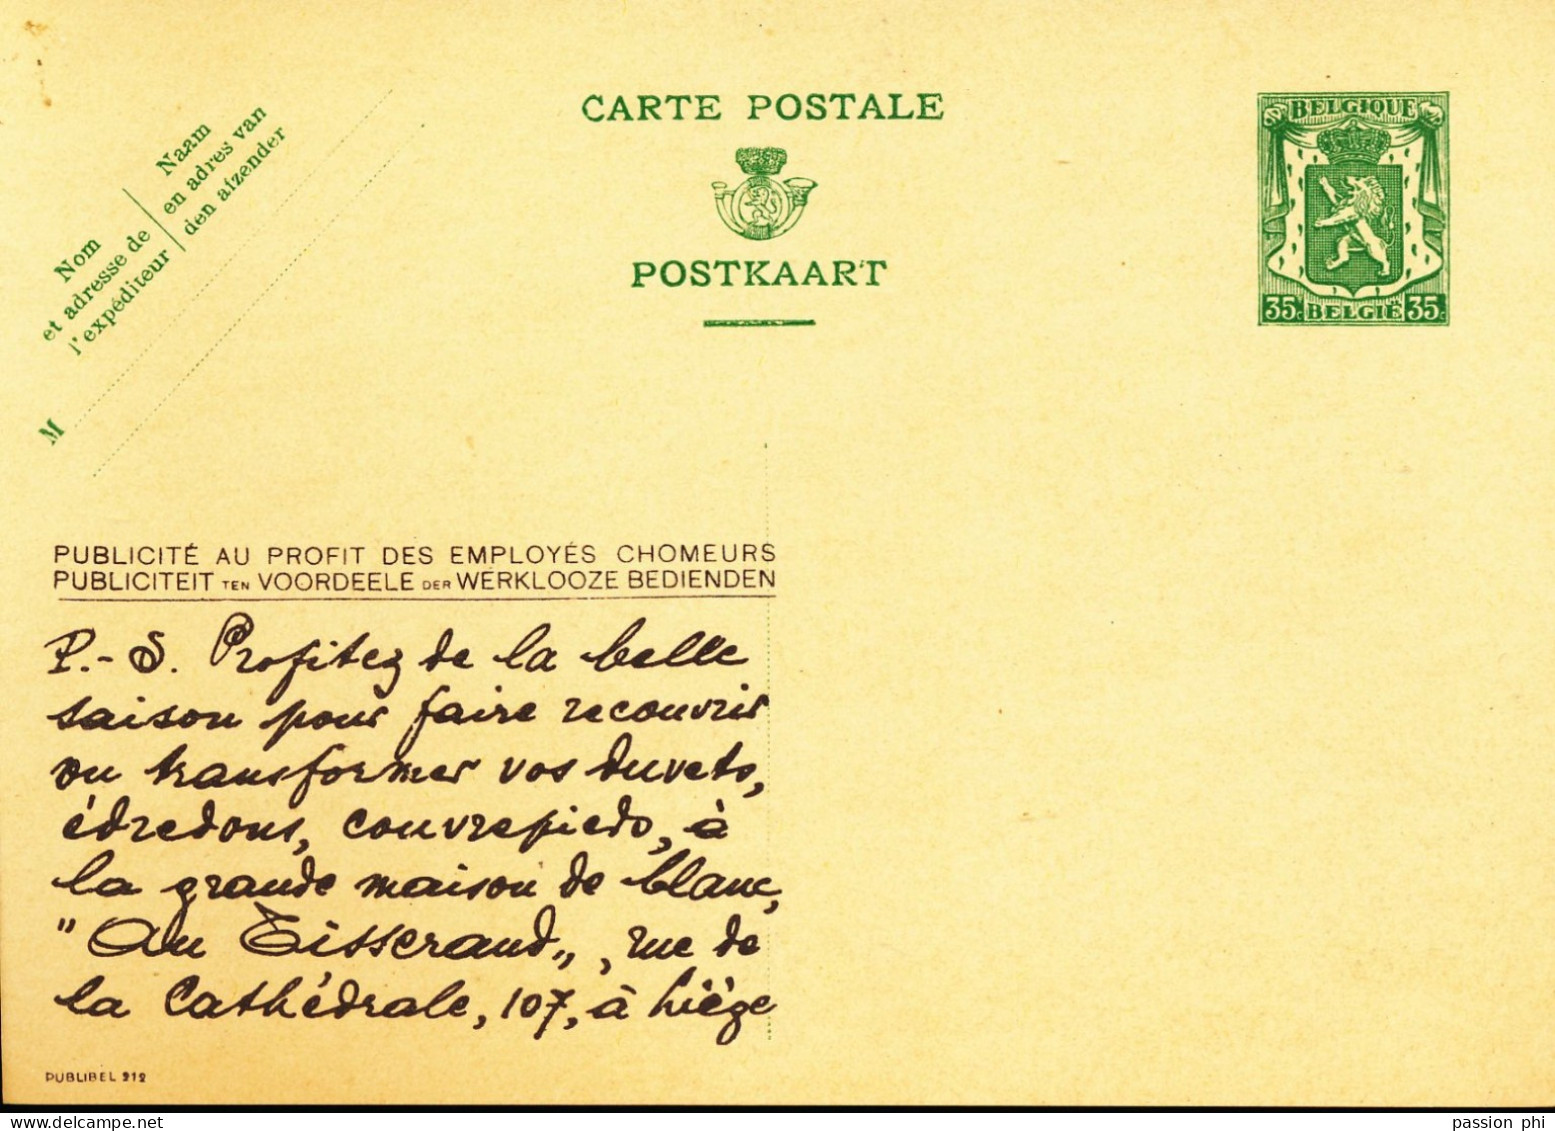 CARTE POSTALE
POSTKAART
BELGIQUE
35c BELGIË 35c
Nom
et adresse de
l'expéditeur
Naam
en adres van
den afzender
M
PUBLICITÉ AU PROFIT DES EMPLOYÉS CHOMEURS
PUBLICITEIT TEN VOORDEELE DER WERKLOOZE BEDIENDEN
P.-S. Profitez de la belle
saison pour faire recouvrir
ou transformer vos duvets,
édredons, couvrepieds, à
la grande maison de blanc,
"Au Tisserand„, rue de
la Cathédrale, 107, à Liége
PUBLIBEL 212
passion phi